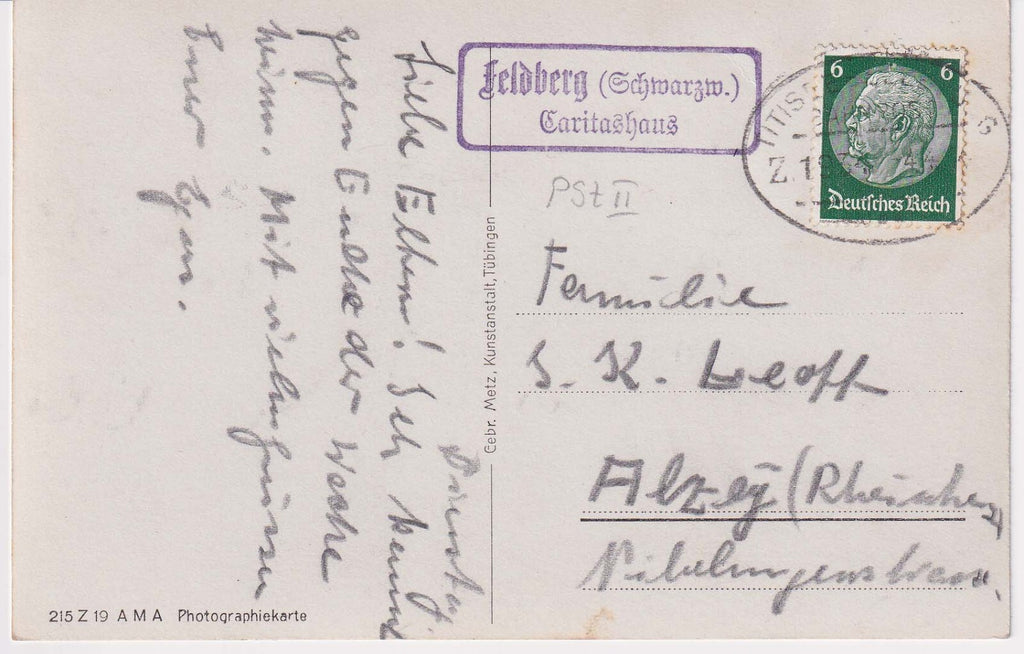 Dienstag
Liebe Eltern! Ich komme
gegen Ende der Woche
heim. Mit viel
Euer
Feldberg (Schwarzw.)
Caritashaus
6 6
Deutsches Reich
TITISEE
Z. 1
PSt II
Familie
K. Leoff
Alzey (Rheinhessen)
Nibelungenstrasse.
Gebr. Metz, Kunstanstalt, Tübingen
215 Z 19 A M A Photographiekarte